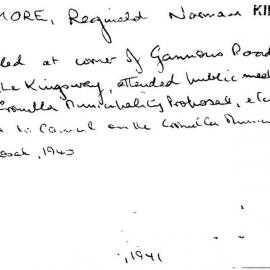 MORE, Reginald Norman KI
led at corner of Gannons Road
Kingsway, attended public mee
Cronulla Municipality Proposal, etc
to Council on the Cronulla Munic
osal, 1940
, 1941